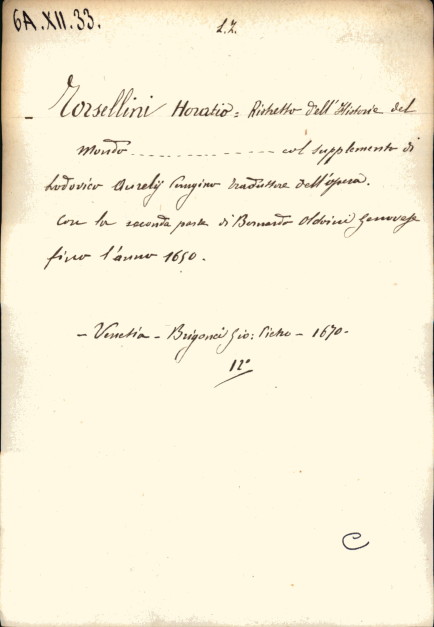 6A.XII.33.
L.Z.
Torsellini Horatio = Ristretto dell'Historie del
Mondo . . . . . . . . . . . . col supplemento di
Lodovico Aurelij Perugino traduttore dell'opera.
Con la seconda parte di Bernardo Oldoini Genovese
fino l'anno 1650.
- Venetia - Brigonci Gio: Pietro - 1670 -
12°
C